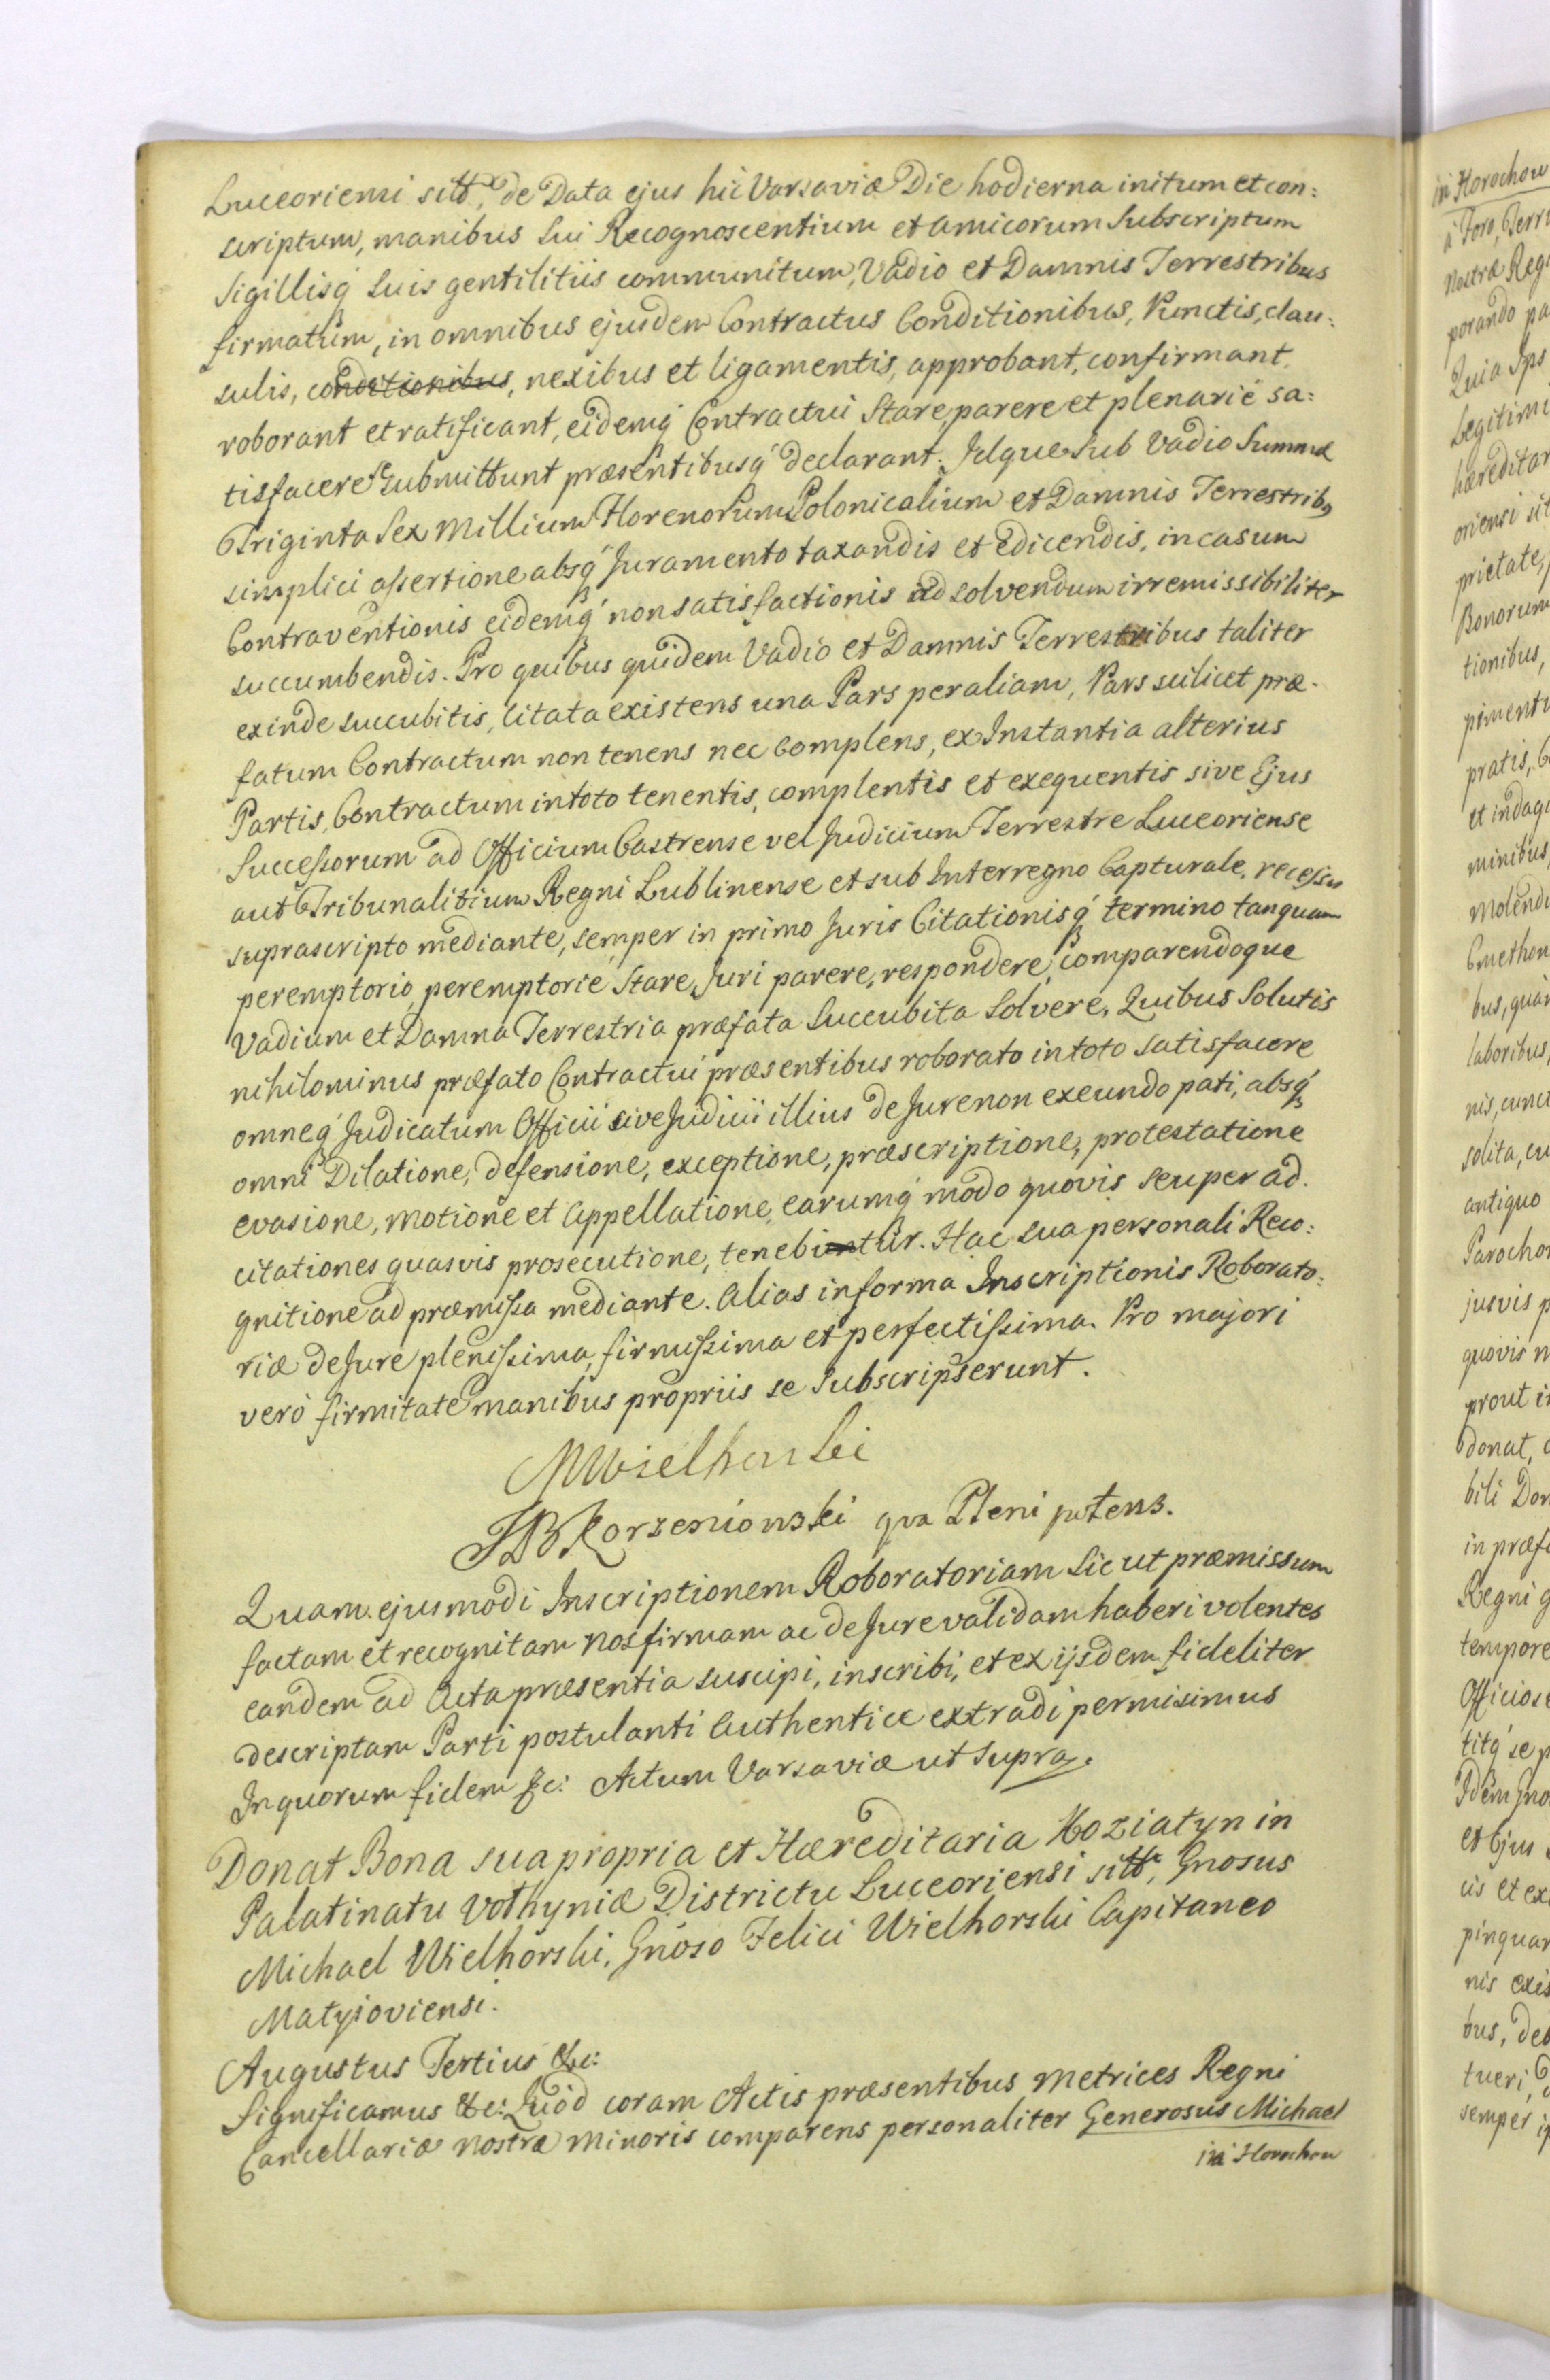 Luceoriensi sitt, de Data ejus hic Varsaviæ Die hodierna initum et con:
scriptum, manibus Sui Recognoscentium et amicorum Subscriptum
Sigillisq́ Suis gentilitiis communitum, Vadio et Damnis Terrestribus
firmatum, in omnibus ejusdem Contractus Conditionibus, Punctis, clau:
sulis, conditionibus, nexibus et ligamentis, approbant, confirmant
roborant et ratificant, eidemq́ Contractui Stare, parere et plenarie sa:
tisfacere se Submittunt præsentibusq́ declarant. Idque Sub Vadio Summæ
Triginta Sex Millium Florenorum Polonicalium et Damnis Terrestribq
simplici assertione absq́ Juramento taxandis et edicendis, in casum
Contraventionis eidemq́ non satisfactionis ad solvendum irremissibiliter
succumbendis. Pro quibus quidem Vadio et Damnis Terrestribus taliter
exinde succubitis, Citata existens una Pars per aliam, Pars scilicet præ-
fatum Contractum non tenens nec Complens, ex Instantia alterius
Partis, Contractum in toto tenentis, complentis et exequentis sive Ejus
Successorum ad Officium Castrense vel Judicium Terrestre Luceoriense
aut Tribunalitium Regni Lublinense et sub Interregno Capturale, recessu
suprascripto mediante, semper in primo Juris Citationisq́ termino tanquam
peremptorio, peremptorie Stare, Juri parere, respondere, comparendoque
Vadium et Damna Terrestria præfata Succubita Solvere, Quibus Solutis
nihilominus præfato Contractui præsentibus roborato in toto satisfacere
omneq́ Judicatum Officii sive Judicii illius de Jure non exeundo pati, absq́
omni Dilatione, defensione, exceptione, præscriptione, protestatione
evasione, motione et Appellatione, earumq́ modo quovis seu per ad.
citationes quasvis prosecutione, tenebuntur. Hac sua personali Reco:
gnitione ad præmissa mediante. Alias in forma Inscriptionis Roborato:
riæ de Jure plenissima, firmissima et perfectissima. Pro majori
verò firmitate manibus propriis se Subscripserunt.
MWielhorski
JBKorzeniowski qva Plenipotens.
Quam ejusmodi Inscriptionem Roboratoriam Sic ut præmissum
factam et recognitam Nos firmam ac de Jure validam haberi volentes
eandem ad Acta præsentia suscipi, inscribi, et ex ijsdem fideliter
descriptam Parti postulanti Authentice extradi permisimus
In quorum fidem &c: Actum Varsaviæ ut Supra.
Donat Bona sua propria et Hæreditaria Koziatyn in
Palatinatu Volhyniæ Districtu Luceoriensi sitt, Gnosus
Michael Wielhorski, Gnoso Felici Wielhorski Capitaneo
Matyioviensi.
Augustus Tertius &c:
Significamus &c: Quod coram Actis præsentibus Metrices Regni
Cancellariæ Nostræ Minoris comparens personaliter Generosus Michael
in Horochow
in Horochow
à Foro, Terr
Nostræ Reg
porando pa
Quia Ips
Legitimi
hæreditar
oriensi sit
prietate,
Bonorum
tionibus,
pimentu
pratis,
et indag
minibus
molend
Cmethon
bus, quàm
laboribus,
nis, cunct
solita, cu
antiquo
Parochor
jusvis p
quovis n
prout i
donat,
bili Don
in præf
Regni g
tempore
Officiose
titq́ se
Idem Gno
et Ejus
cis et ex
pinguar
nis exis
bus, deb
tueri,
semper